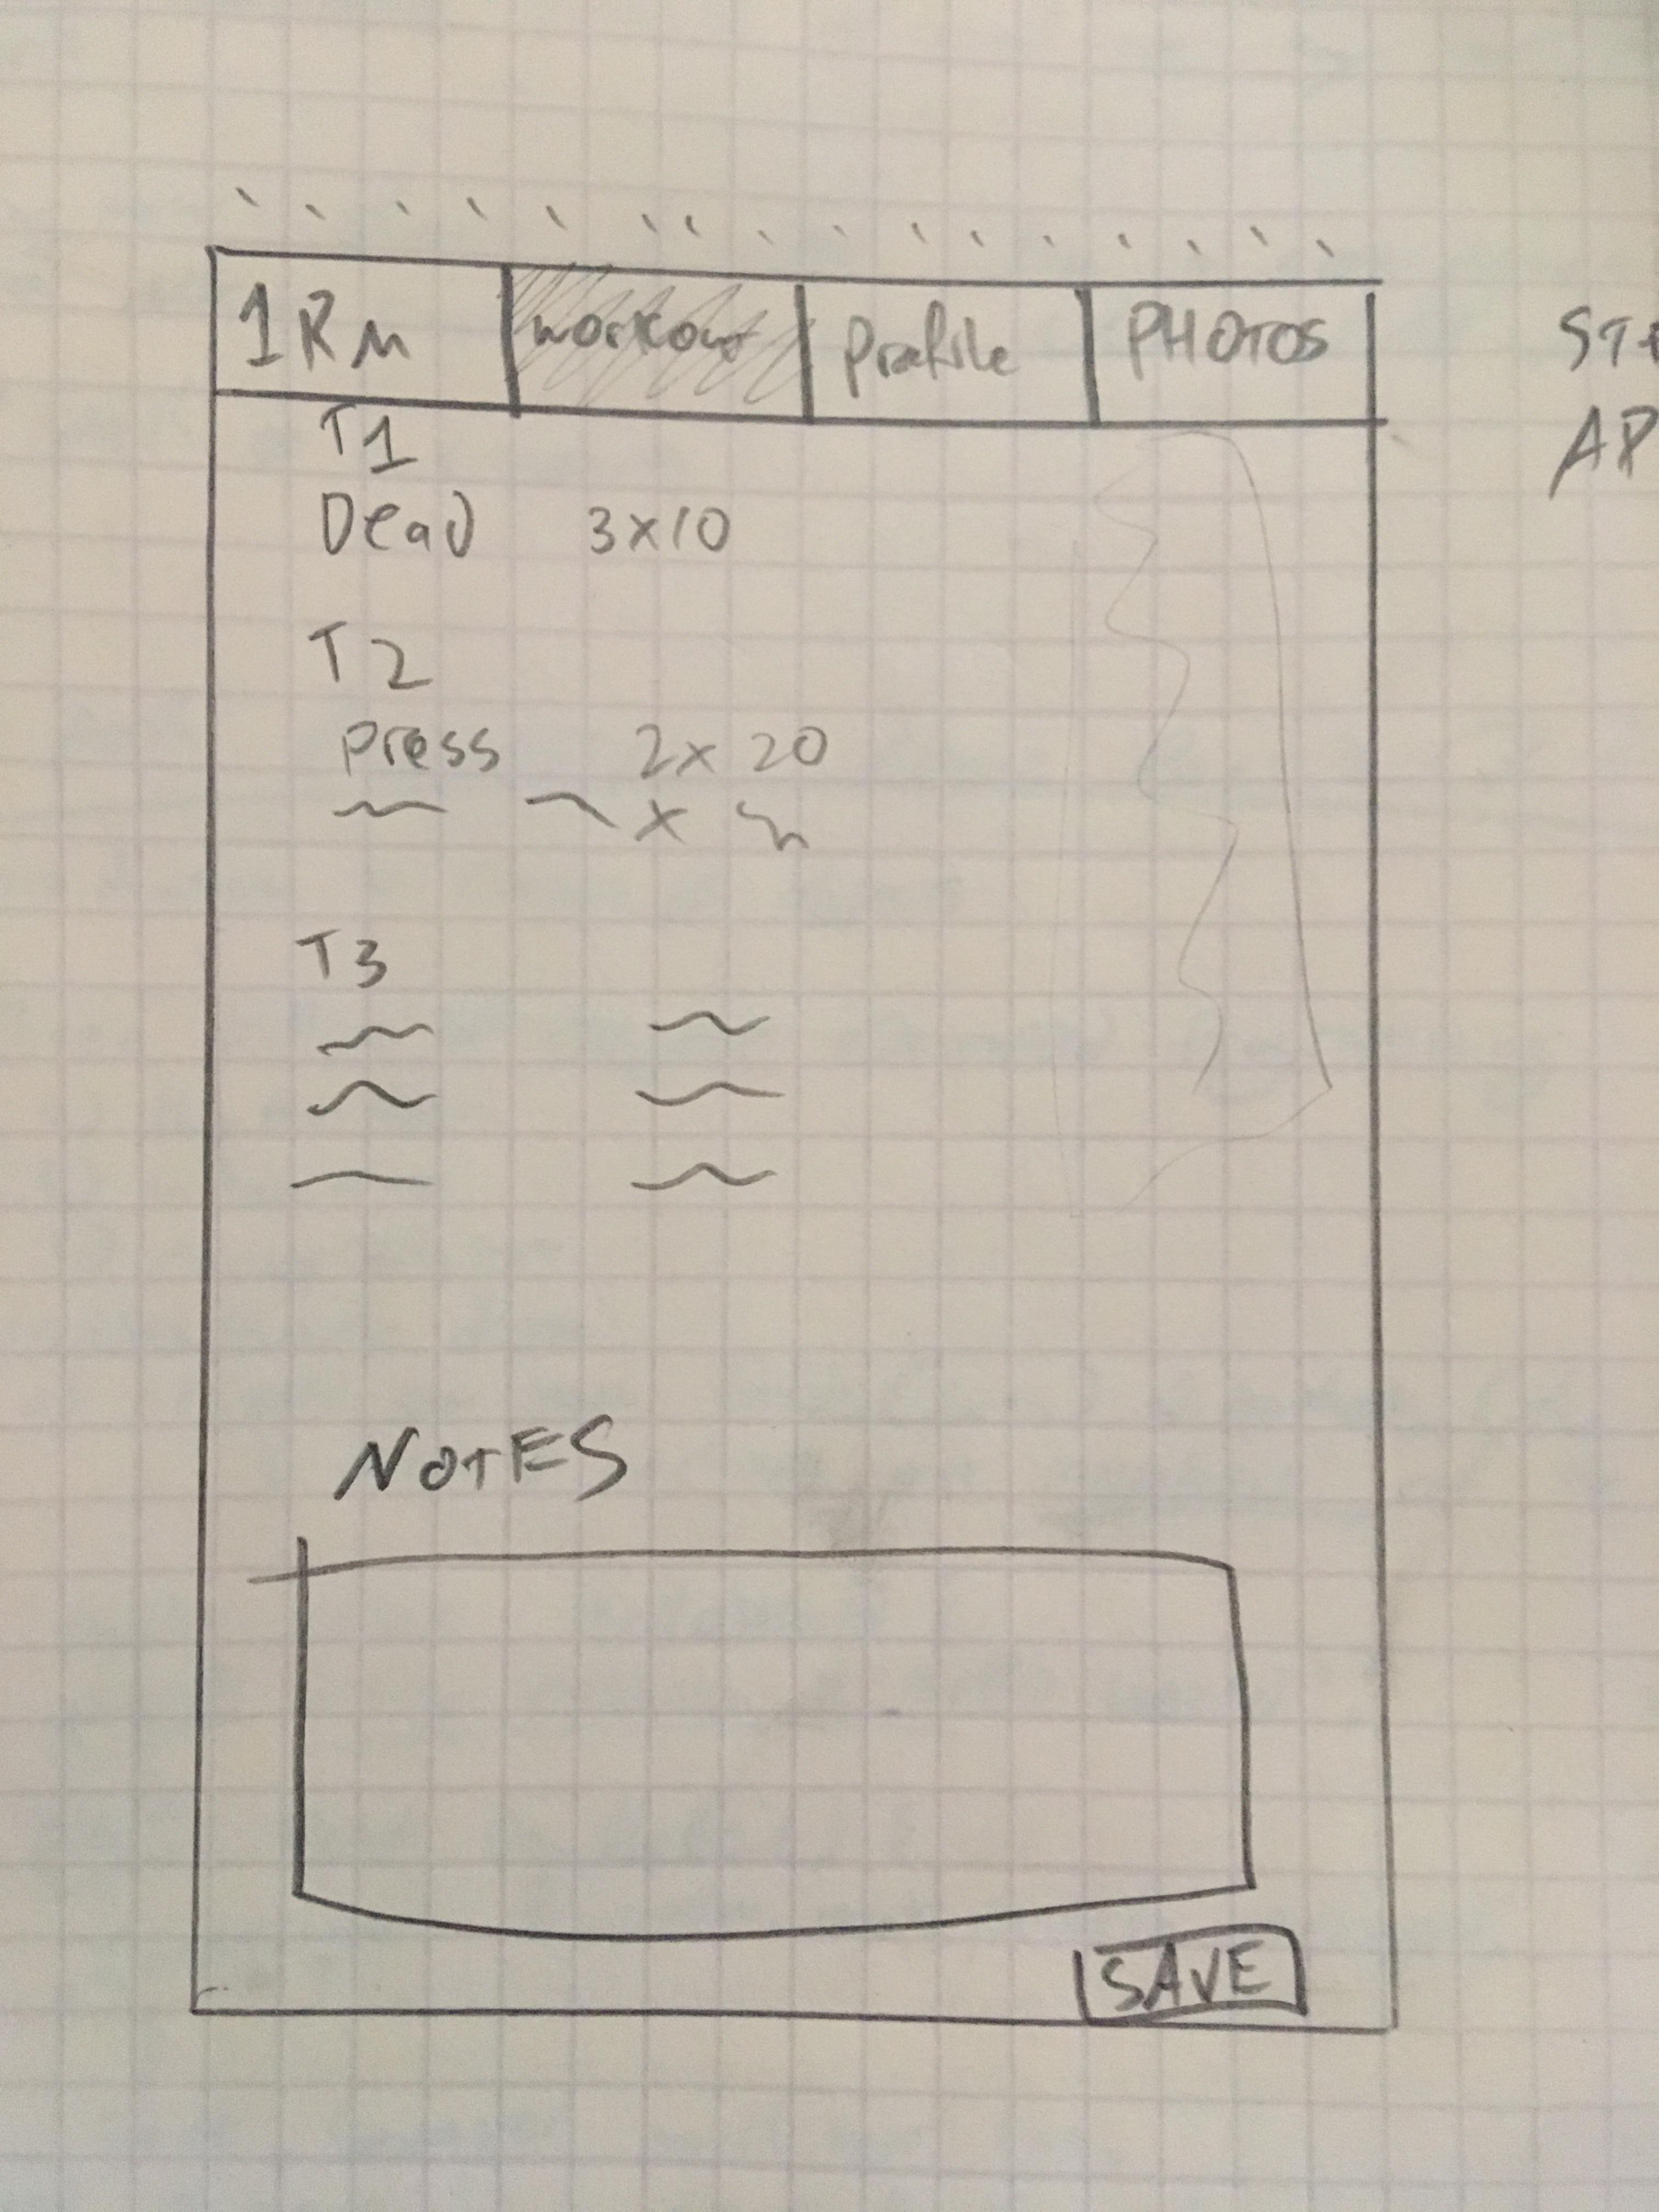 1RM workout Profile PHOTOS
T1
Dead 3x10
T2
Press 2x 20
x
T3
NOTES
SAVE